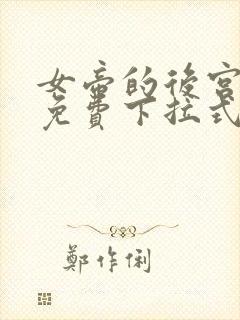 女帝的後宮
免費下拉式
鄭作俐